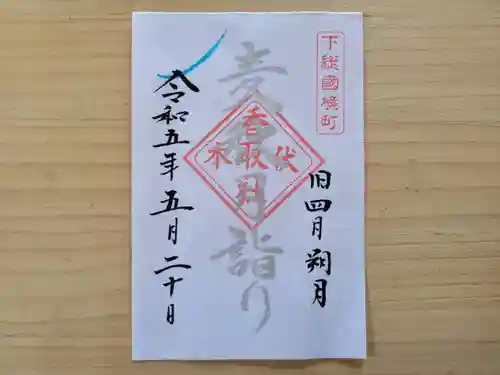 下総國境町
旧四月朔月
月詣り
香取
伏木
令和五年五月二十日